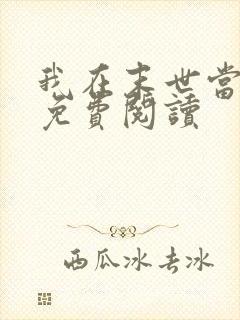 我在末世當
免費閱讀
西瓜冰去冰